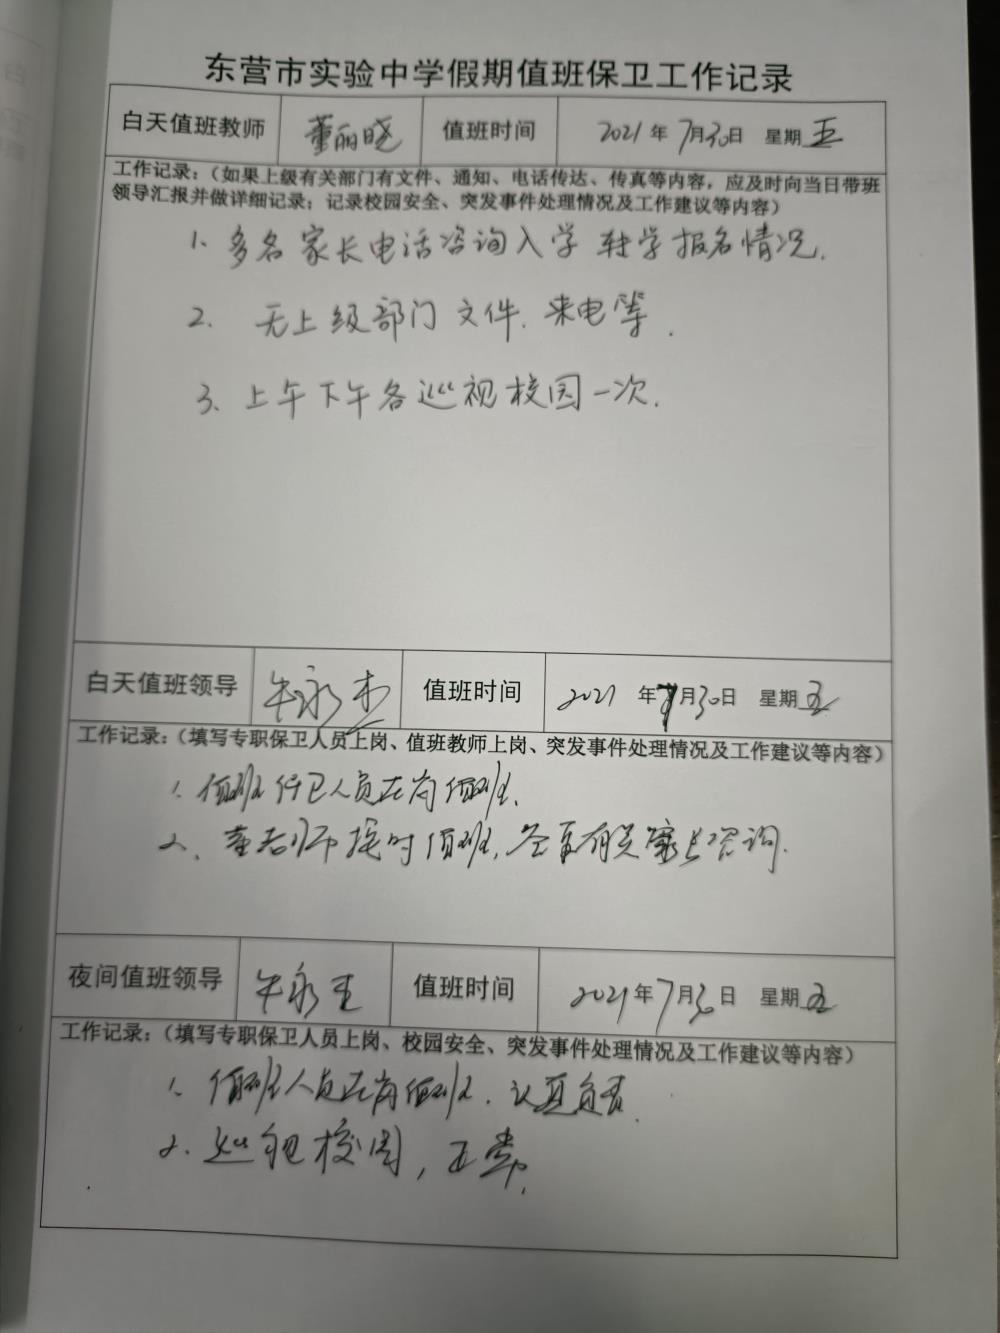 东营市实验中学假期值班保卫工作记录
白天值班教师 董丽晓 值班时间 2021年7月30日 星期五
工作记录：（如果上级有关部门有文件、通知、电话传达、传真等内容，应及时向当日带班
领导汇报并做详细记录；记录校园安全、突发事件处理情况及工作建议等内容）
1、多名家长电话咨询入学转学报名情况.
2. 无上级部门文件.来电等.
3、上午下午各巡视校园一次.
白天值班领导 牛永 值班时间 2021年7月30日 星期五
工作记录：（填写专职保卫人员上岗、值班教师上岗、突发事件处理情况及工作建议等内容）
1.值班保卫人员在岗值班、
2、董老师按时值班,答复有关家长咨询.
夜间值班领导 牛永 值班时间 2021年7月30日 星期五
工作记录：（填写专职保卫人员上岗、校园安全、突发事件处理情况及工作建议等内容）
1.值班人员在岗值班.认真负责.
2.巡视校园,正常.